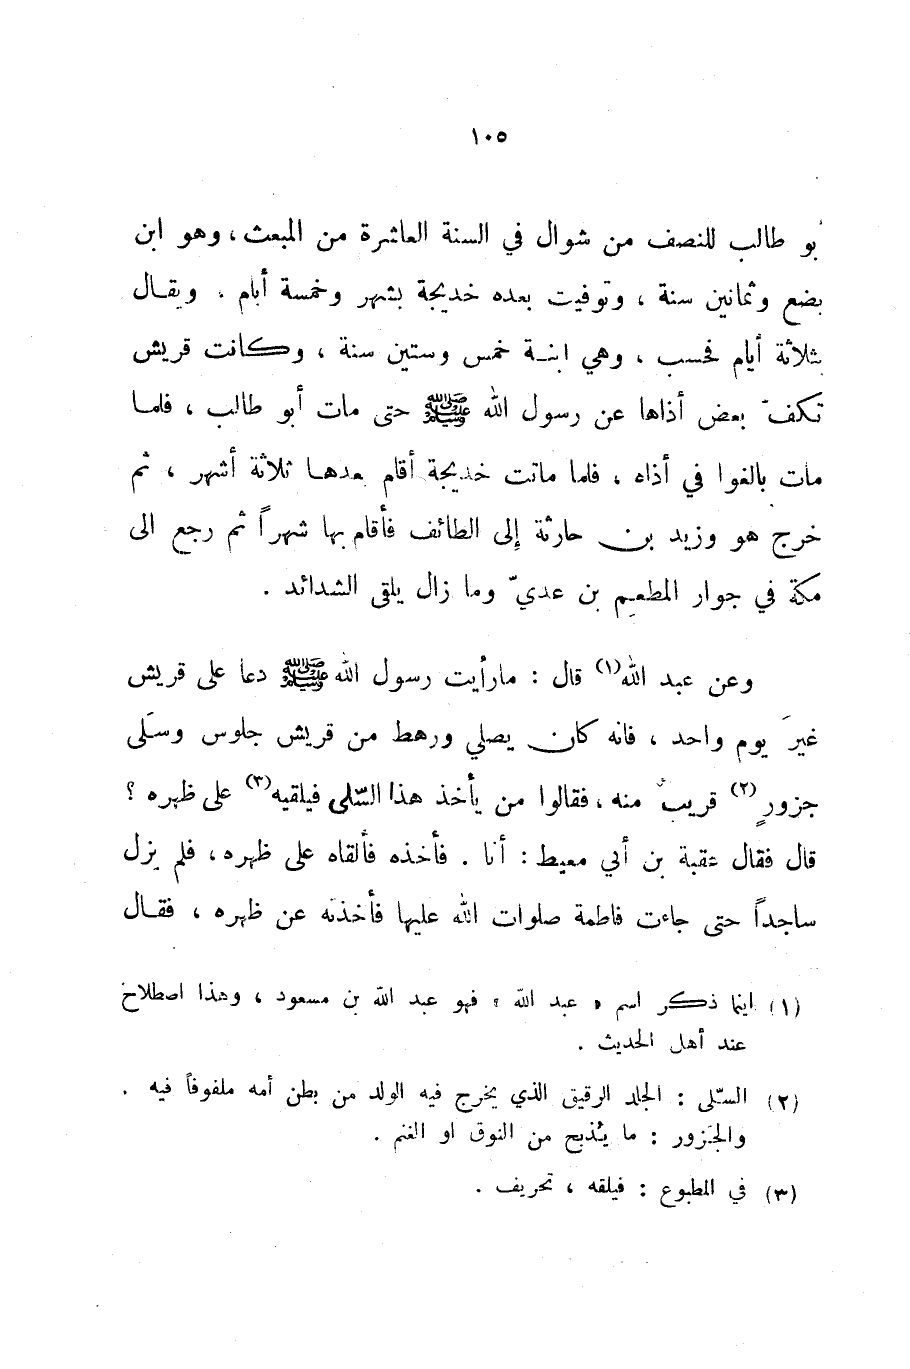 ١٠٥
أبو طالب للنصف من شوال في السنة العاشرة من المبعث ، وهو ابن
بضع وثمانين سنة ، وتوفيت بعده خديجة بشهر وخمسة أيام . ويقـال
بثلاثة أيام فحسب ، وهي ابنـة خمس وستين سنة ، وكانت قريش
تكفّ بعض أذاها عن رسول الله ﷺ حتى مات أبو طالب ، فلمـا
مات بالغوا في أذاه ، فلما ماتت خديجة أقام بعدهـا ثلاثة أشهر ، ثم
خرج هو وزيد بن حارثة إلى الطائف فأقام بها شهراً ثم رجع الى
مكة في جوار المطعم بن عديّ وما زال يلقى الشدائد .
وعن عبد الله(١) قال : مارأيت رسول الله ﷺ دعا على قريش
غيرَ يوم واحد ، فانه كان يصلي ورهط من قريش جلوس وسَلى
جزورٍ(٢) قريبٌ منه ، فقالوا من يأخذ هذا السّلى فيلقيه(٣) على ظهره ؟
قال فقال عقبة بن أبي معيط : أنا . فأخذه فألقاه على ظهره ، فلم يزل
ساجداً حتى جاءت فاطمة صلوات الله عليها فأخذته عن ظهره ، فقـال
(١) اينما ذكر اسم « عبد الله » فهو عبد الله بن مسعود ، وهذا اصطلاح
عند أهل الحديث .
(٢) السّلى : الجلد الرقيق الذي يخرج فيه الولد من بطن أمه ملفوفاً فيه .
والجَزور : ما يُذبح من النوق او الغنم .
(٣) في المطبوع : فيلقه ، تحريف .